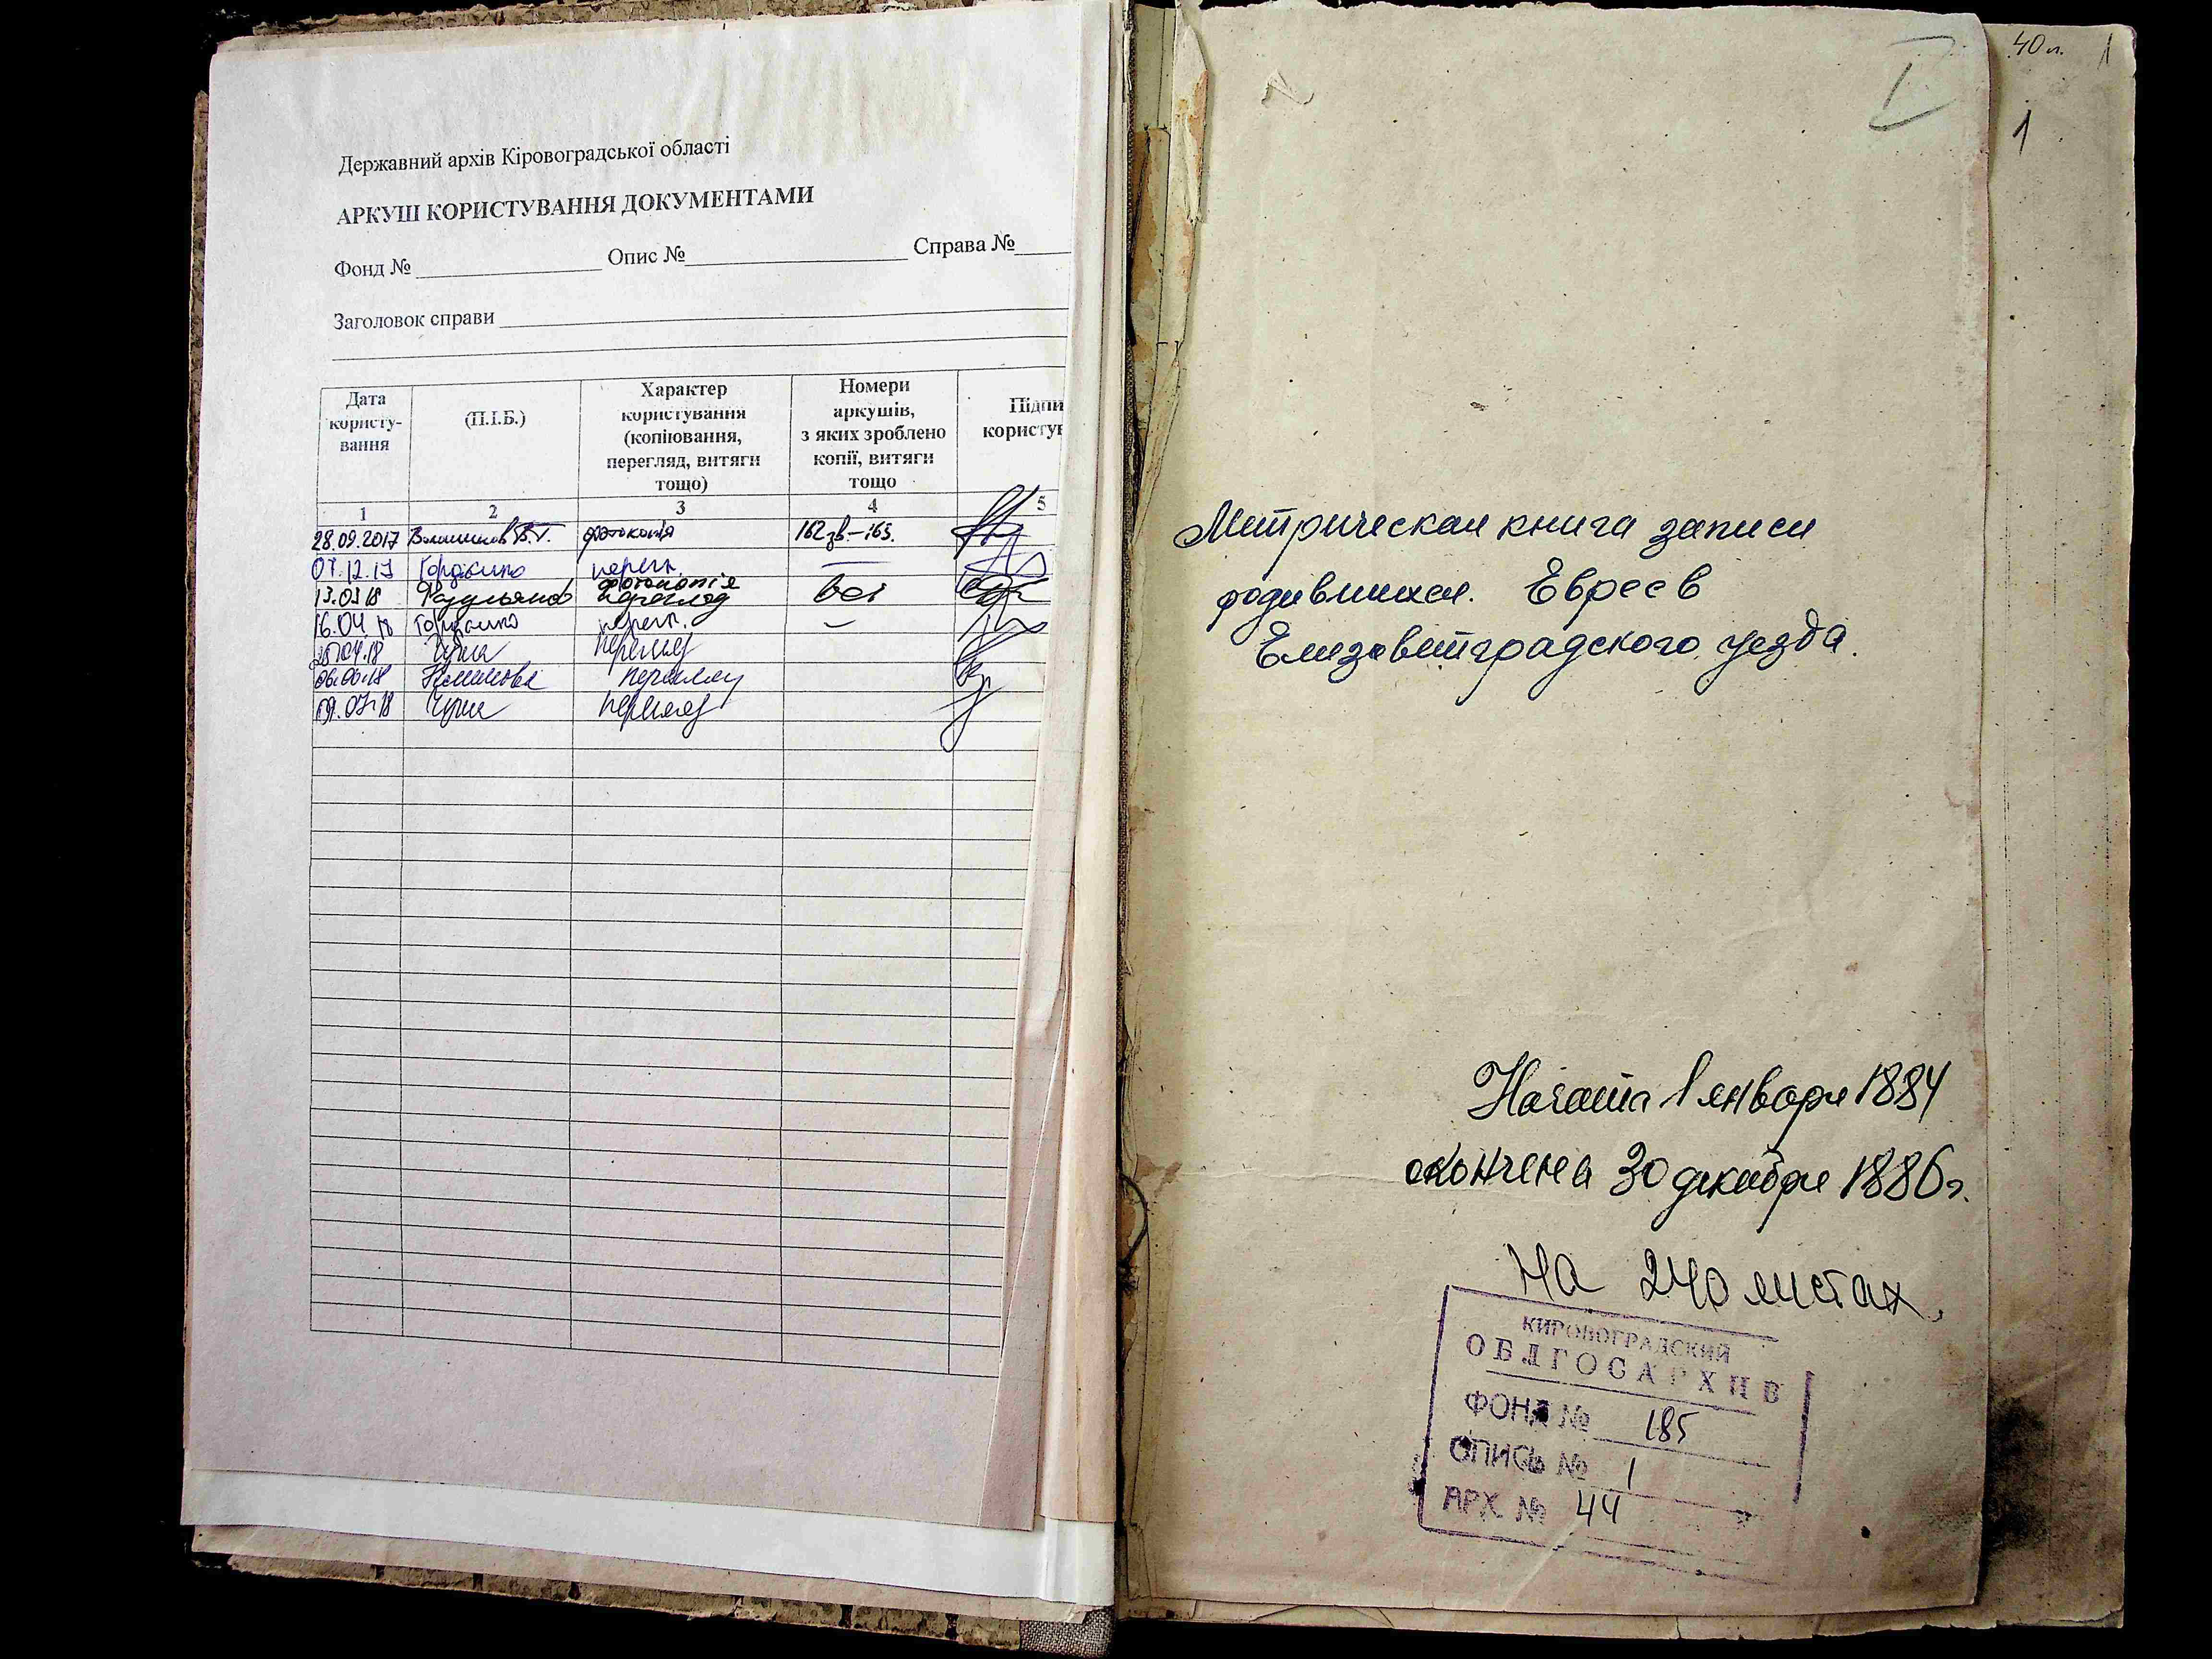 Державний архів Кіровоградської області
АРКУШ КОРИСТУВАННЯ ДОКУМЕНТАМИ
Фонд № Опис № Справа №
Заголовок справи
Дата користу-вання
(П.І.Б.)
Характер користування (копіювання, перегляд, витяги тощо)
Номери аркушів, з яких зроблено копії, витяги тощо
Підпи
користув
1 2 3 4 5
28.09.2017 фотокопія 162зв.-163.
07.12.17 перегл.
13.03.18 фотокопія
перегляд всі
16.04.18 перегл.
04.18 Чуна перегляд
06.06.18 перегляд
09.07.18 Чуна перегляд
40 л. 1
1
I
Метрическая книга записи
родившихся. Евреев
Елизаветградского уезда.
Начата 1 января 1884
окончена 30 декабря 1886г.
На 240 листах.
КИРОВОГРАДСКИЙ
ОБЛГОСАРХИВ
ФОНД № 185
ОПИСЬ № 1
АРХ № 44